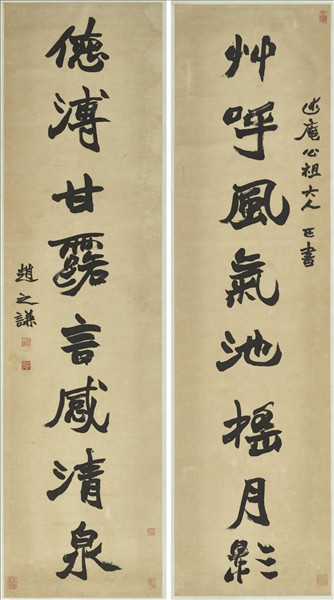 述庵公祖大人正書
艸呼風氣池搖月影
德溥甘露言感清泉
趙之謙